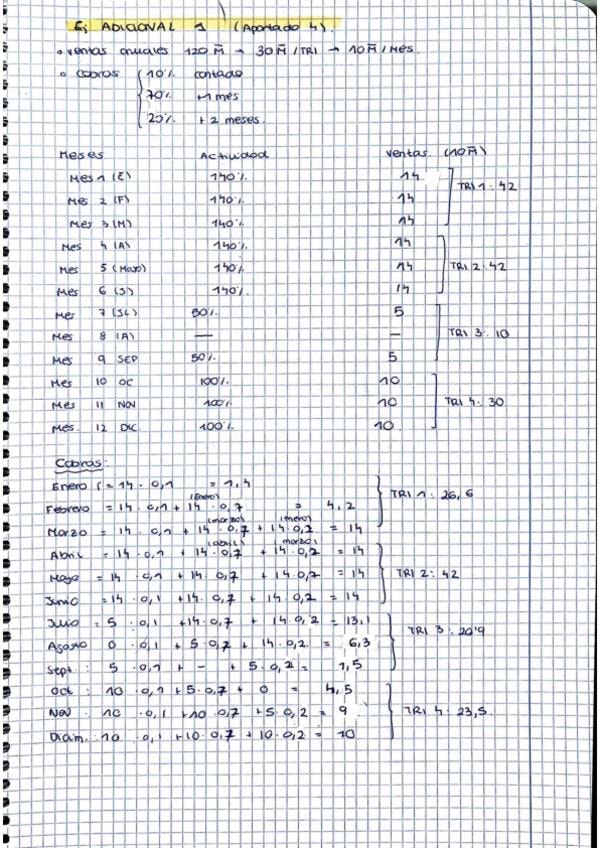 Ej ADICIONAL 1 (Apartado 4).
• ventas anuales 120 M̄ → 30 M̄ /TRI → 10 M̄ / Mes.
• Cobros { 10% contado
70% +1 mes
20% + 2 meses.
Meses Actividad Ventas (10 M̄)
Mes 1 (E) 140% 14
Mes 2 (F) 140% 14 TRI 1: 42
Mes 3 (M) 140% 14
Mes 4 (A) 140% 14
Mes 5 (Mayo) 140% 14 TRI 2: 42
Mes 6 (J) 140% 14
Mes 7 (JL) 50% 5
Mes 8 (A) — — TRI 3: 10
Mes 9 SEP 50% 5
Mes 10 OC 100% 10
Mes 11 NOV 100% 10 TRI 4: 30
Mes. 12 DIC. 100% 10
Cobros:
Enero = 14 · 0,1 = 1,4
(Enero)
Febrero = 14 · 0,1 + 14 · 0,7 = 4,2 TRI 1: 26,6
(marzo) (enero)
Marzo = 14 · 0,1 + 14 · 0,7 + 14 · 0,2 = 14
(abril) (marzo)
Abril = 14 · 0,1 + 14 · 0,7 + 14 · 0,2 = 14
Mayo = 14 · 0,1 + 14 · 0,7 + 14 · 0,2 = 14 TRI 2: 42
Junio = 14 · 0,1 + 14 · 0,7 + 14 · 0,2 = 14
Julio = 5 · 0,1 + 14 · 0,7 + 14 · 0,2 = 13,1
Agosto 0 · 0,1 + 5 · 0,7 + 14 · 0,2 = 6,3 TRI 3: 20'9
Sept: 5 · 0,1 + - + 5 · 0,2 = 1,5
Oct: 10 · 0,1 + 5 · 0,7 + 0 = 4,5
Nov: 10 · 0,1 + 10 · 0,7 + 5 · 0,2 = 9 TRI 4: 23,5.
Diciem. 10 · 0,1 + 10 · 0,7 + 10 · 0,2 = 10